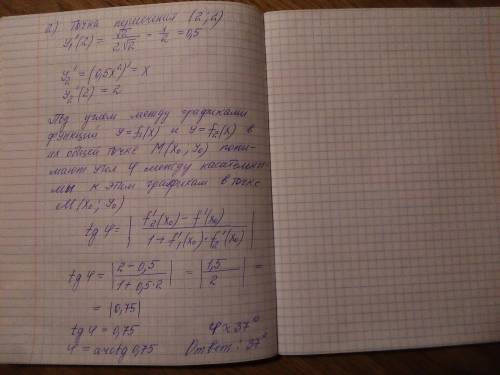 2) Точка пересечения (2; 2)
y₁'(2) = √2 / 2√2 = 1/2 = 0,5
y₂' = (0,5x²)' = x
y₂'(2) = 2
Под углом между графиками
функций y=f₁(x) и y=f₂(x) в
их общей точке M(x₀; y₀) пони-
мают угол φ между касательны-
мы к этим графикам в точке
M(x₀; y₀)
tg φ = | f₂'(x₀) - f'(x₀) / 1 + f₁'(x₀)·f₂'(x₀) |
tg φ = | 2-0,5 / 1+0,5·2 | = | 1,5 / 2 | =
= |0,75|
tg φ = 0,75 φ ≈ 37°
φ = arctg 0,75 Ответ: 37°